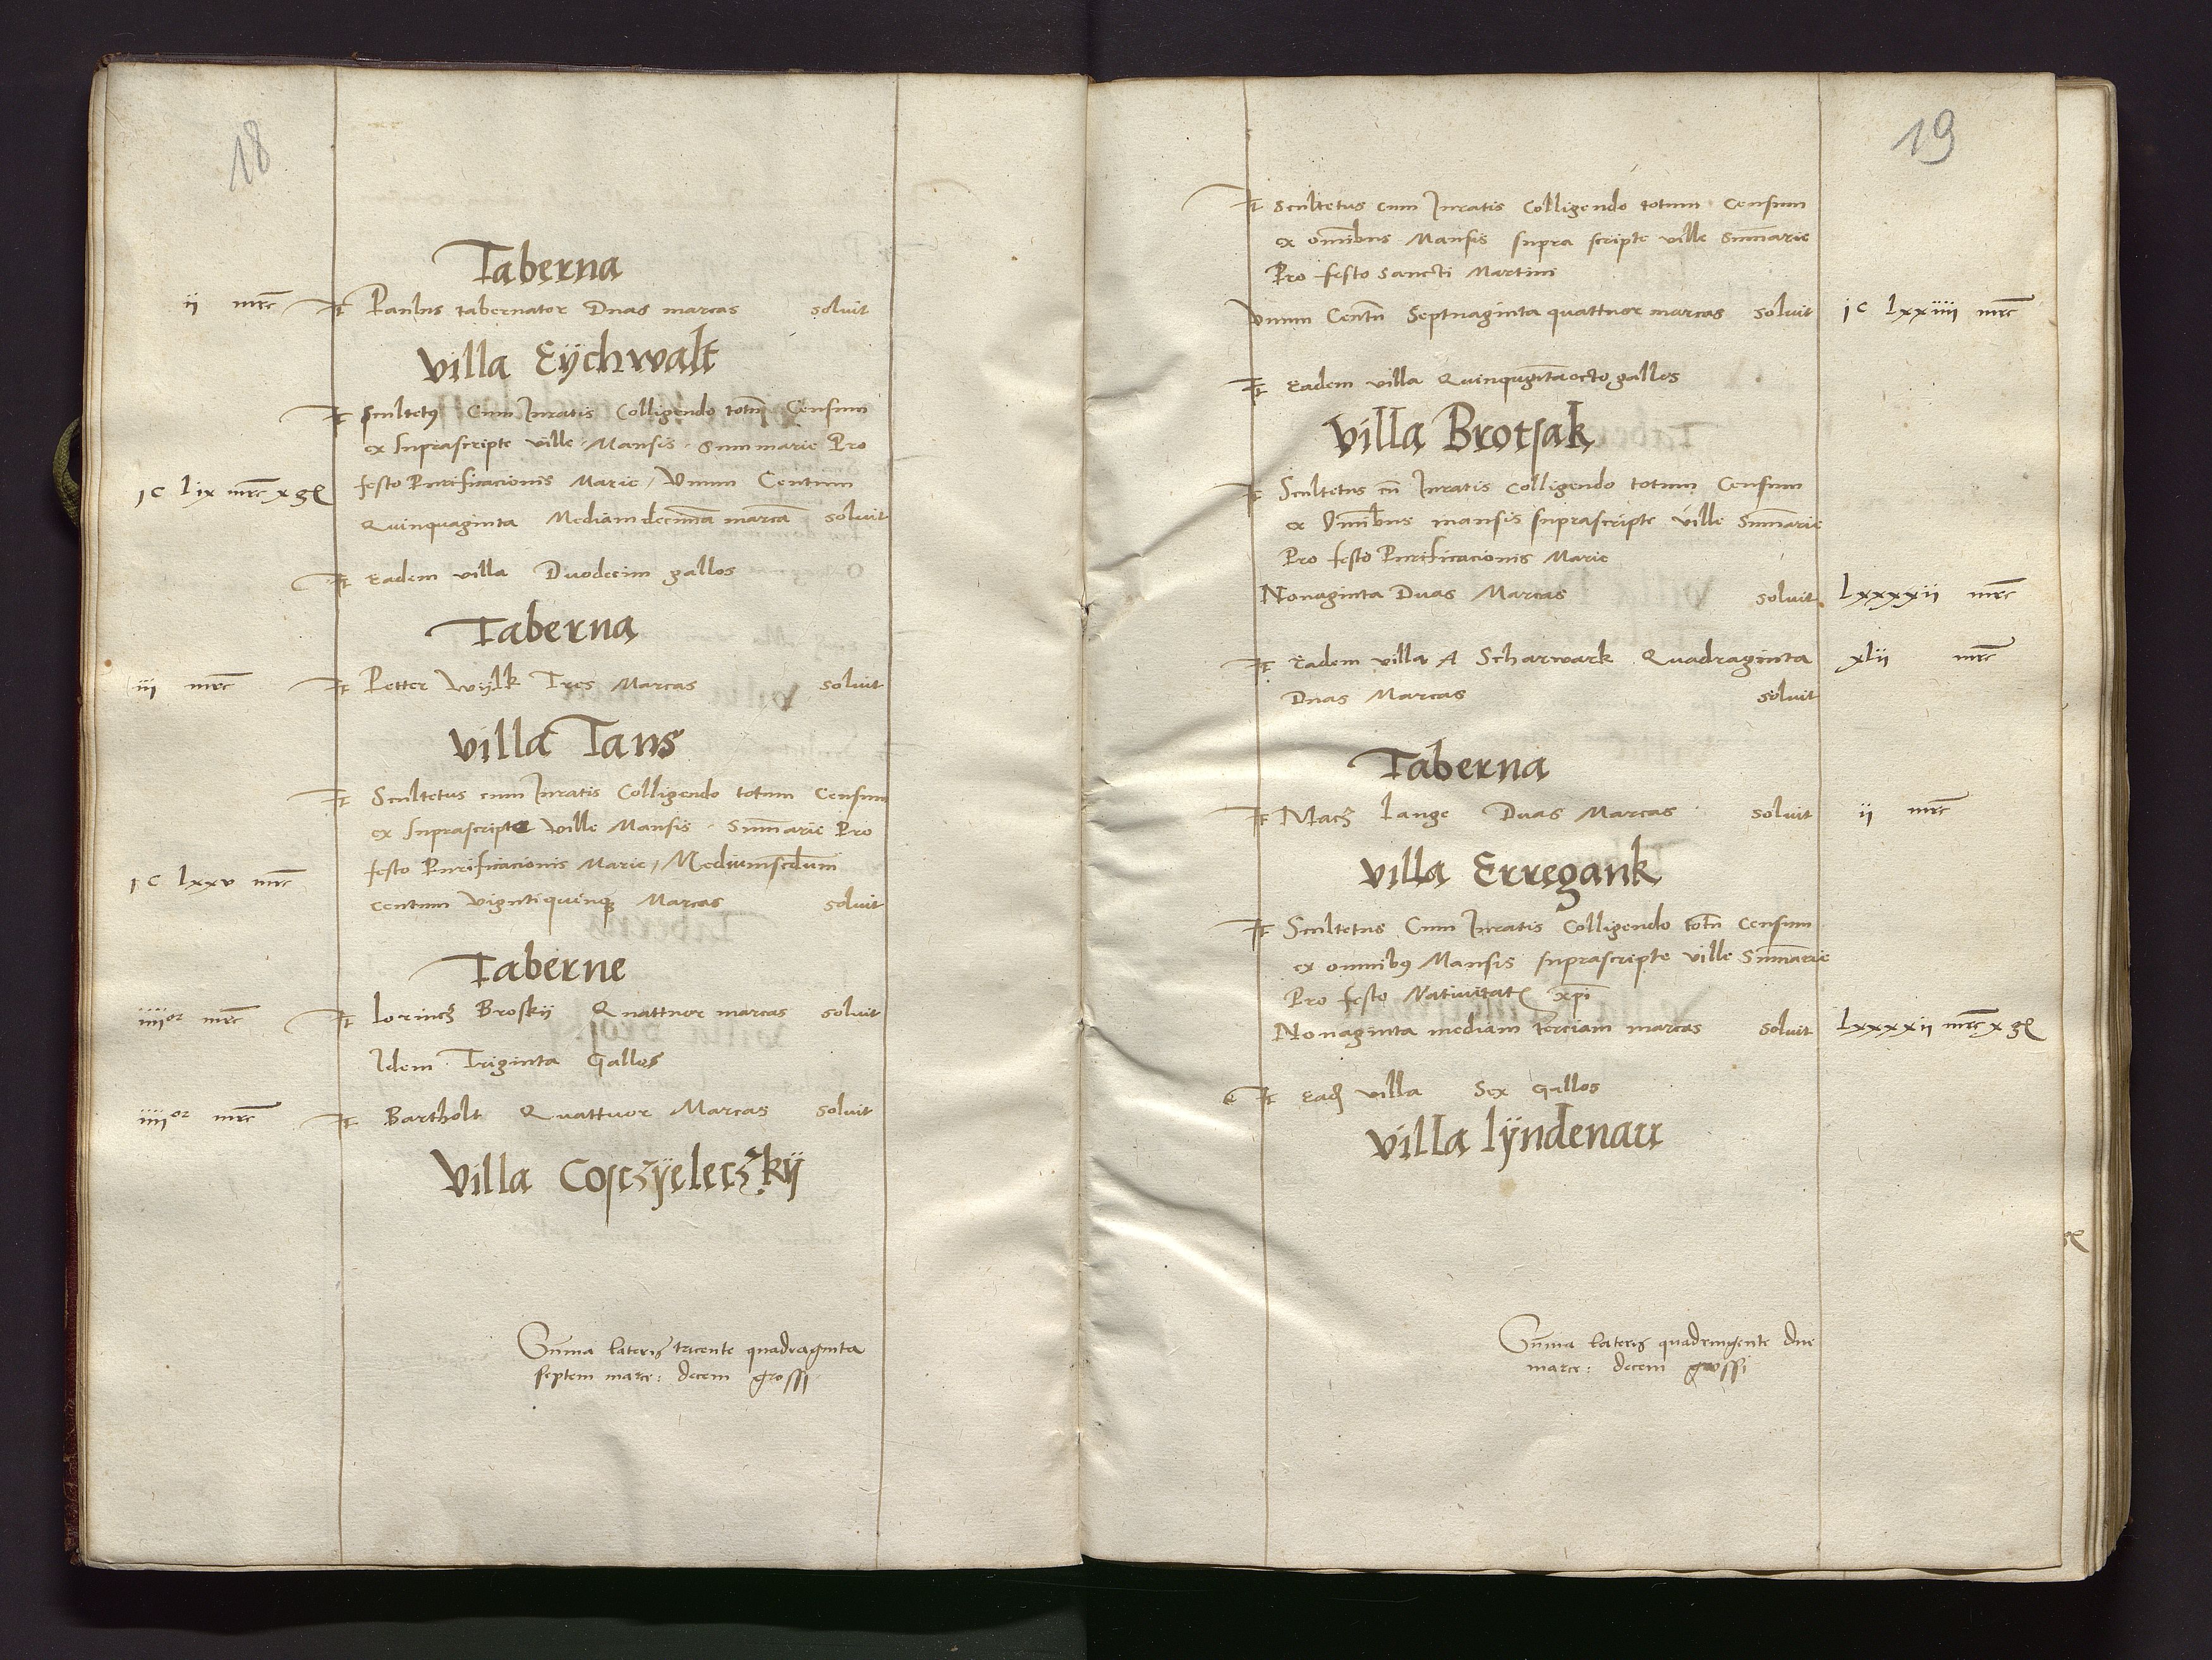 18
Taberna
ii mrc It Paulus tabernator Duas marcas soluit
villa Eÿchwalt
It Scultetꝰ Cum Juratis Colligendo totū Censum
ex suprascripte ville Mansis Summarie Pro
festo Purificacionis Marie / Vnum Centum
jc lix mrc x gr
Quinquaginta Mediam decimā marcā soluit
It Eadem villa Duodecim gallos
Taberna
iii mrc It Petter Wÿlk Tres Marcas soluit
villa Tans
It Scultetus cum Juratis Colligendo totum Censum
ex suprascripte Ville Mansis Sum̄arie Pro
festo Purificacionis Marie / Mediumscdum
jc lxxv mrc
centum Vigntiquinqꝫ Marcas soluit
Taberne
iiiior mrc It lorincz Broskÿ Quattuor marcas soluit
Idem Triginta Gallos
iiiior mrc It Bartholt Quattuor Marcas soluit
Villa Cosczÿeleczkÿ
Sūma lateris tricente quadraginta
septem marce: decem grossi
19
It scultetus cum Juratis Colligendo totum Censum
ex om̄ibus Mansis supra scripte ville Sum̄arie
Pro festo Sancti Martini
Vnum Centū Septuaginta quattuor marcas soluit jc lxxiiii mrc
It Eadem villa Quinqugītaocto gallos
Villa Brotsak
It Scultetus cū Juratis Colligendo totum Censum
ex Om̄ibus mansis suprascripte ville Sum̄arie
Pro festo Purificacionis Marie
Nonaginta Duas Marcas soluit lxxxxii mrc
It Eadem villa A Scharwark Quadraginta xlii mrc
Duas Marcas soluit
Taberna
It Macz lange Duas Marcas soluit ii mrc
villa Erregank
It Scultetus Cum Juratis Colligendo totū Censum
ex omnibꝰ Mansis suprascripte ville Sum̄arie
Pro festo Natiuitatꝭ xp̄i
Nonaginta mediam Terciam marcas soluit lxxxxii mrc x gr
It Eadꝫ villa Sex Gallos
villa lÿndenau
Sūma lateris quadringente due
marce: decem grossi